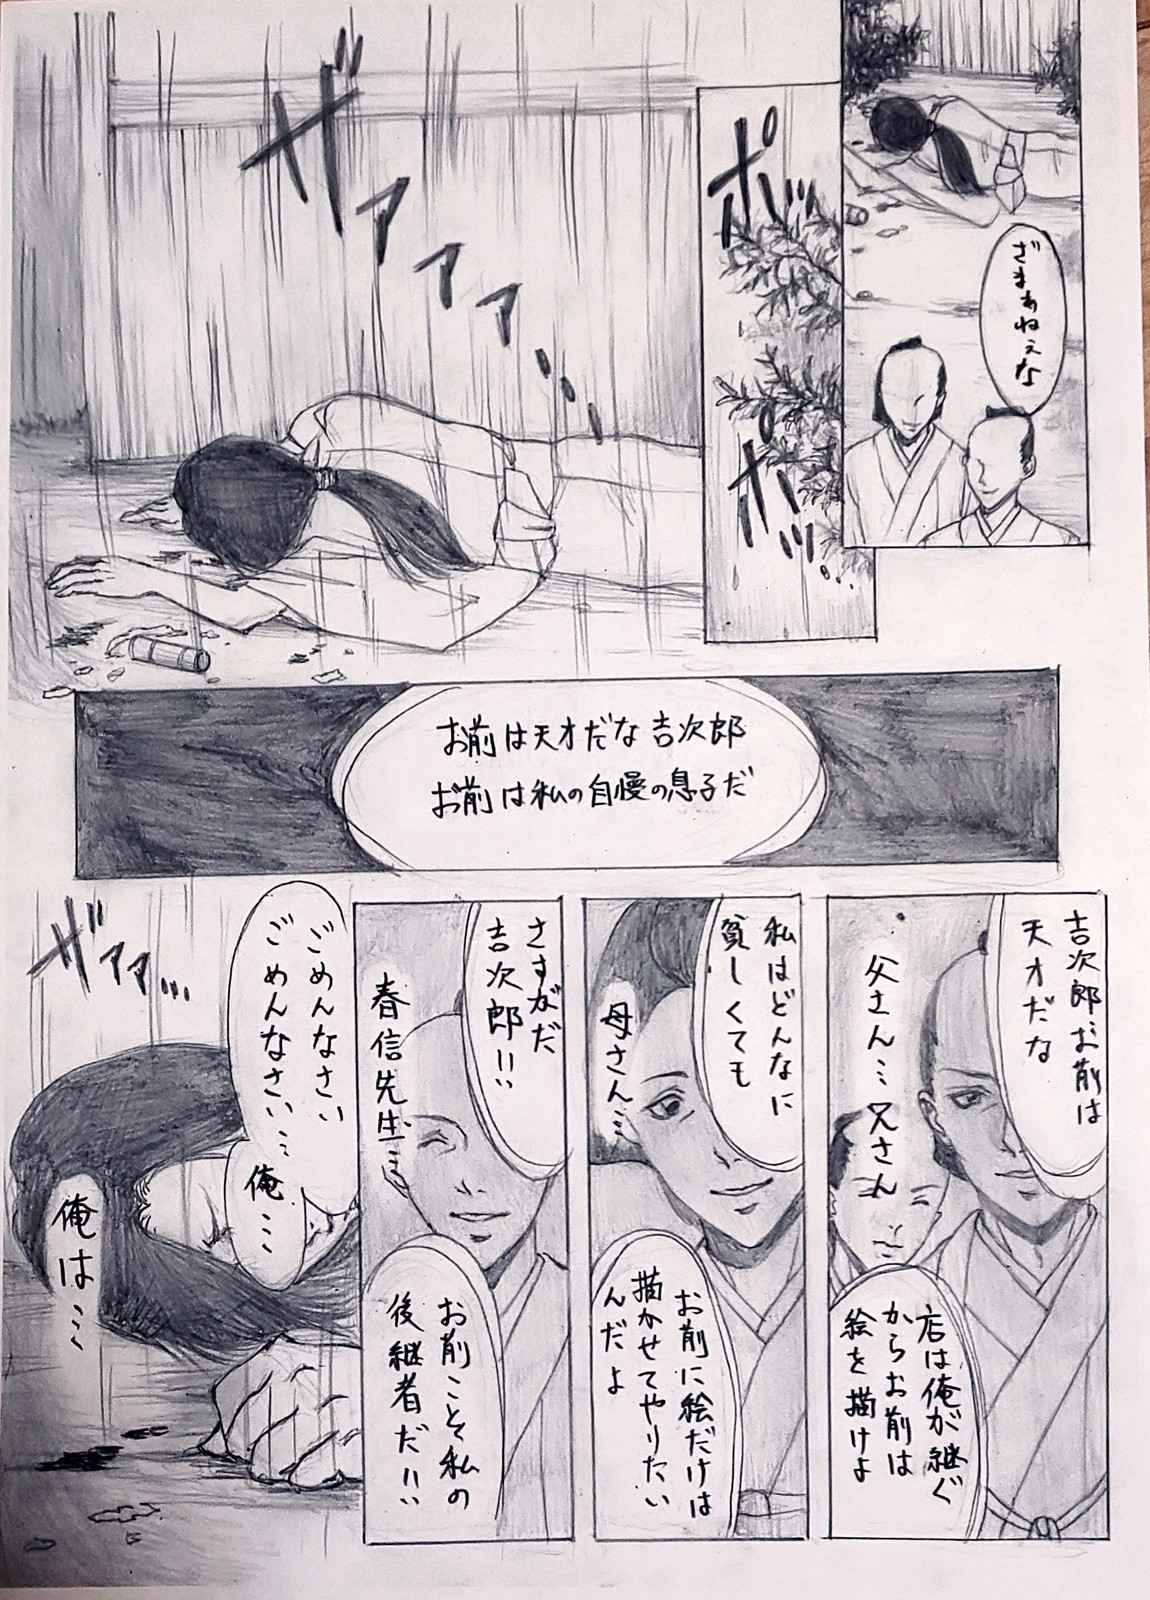 ざまぁねぇな
ポツ
ポツッ…
ザァァァ…
お前は天才だな吉次郎
お前は私の自慢の息子だ
吉次郎お前は
天才だな
父さん…兄さん
店は俺が継ぐ
からお前は
絵を描けよ
私はどんなに
貧しくても
母さん…
お前に絵だけは
描かせてやりたい
んだよ
さすがだ
吉次郎!!
春信先生…
お前こそ私の
後継者だ!!
ザァァ…
ごめんなさい
ごめんなさい…
俺…
俺は…